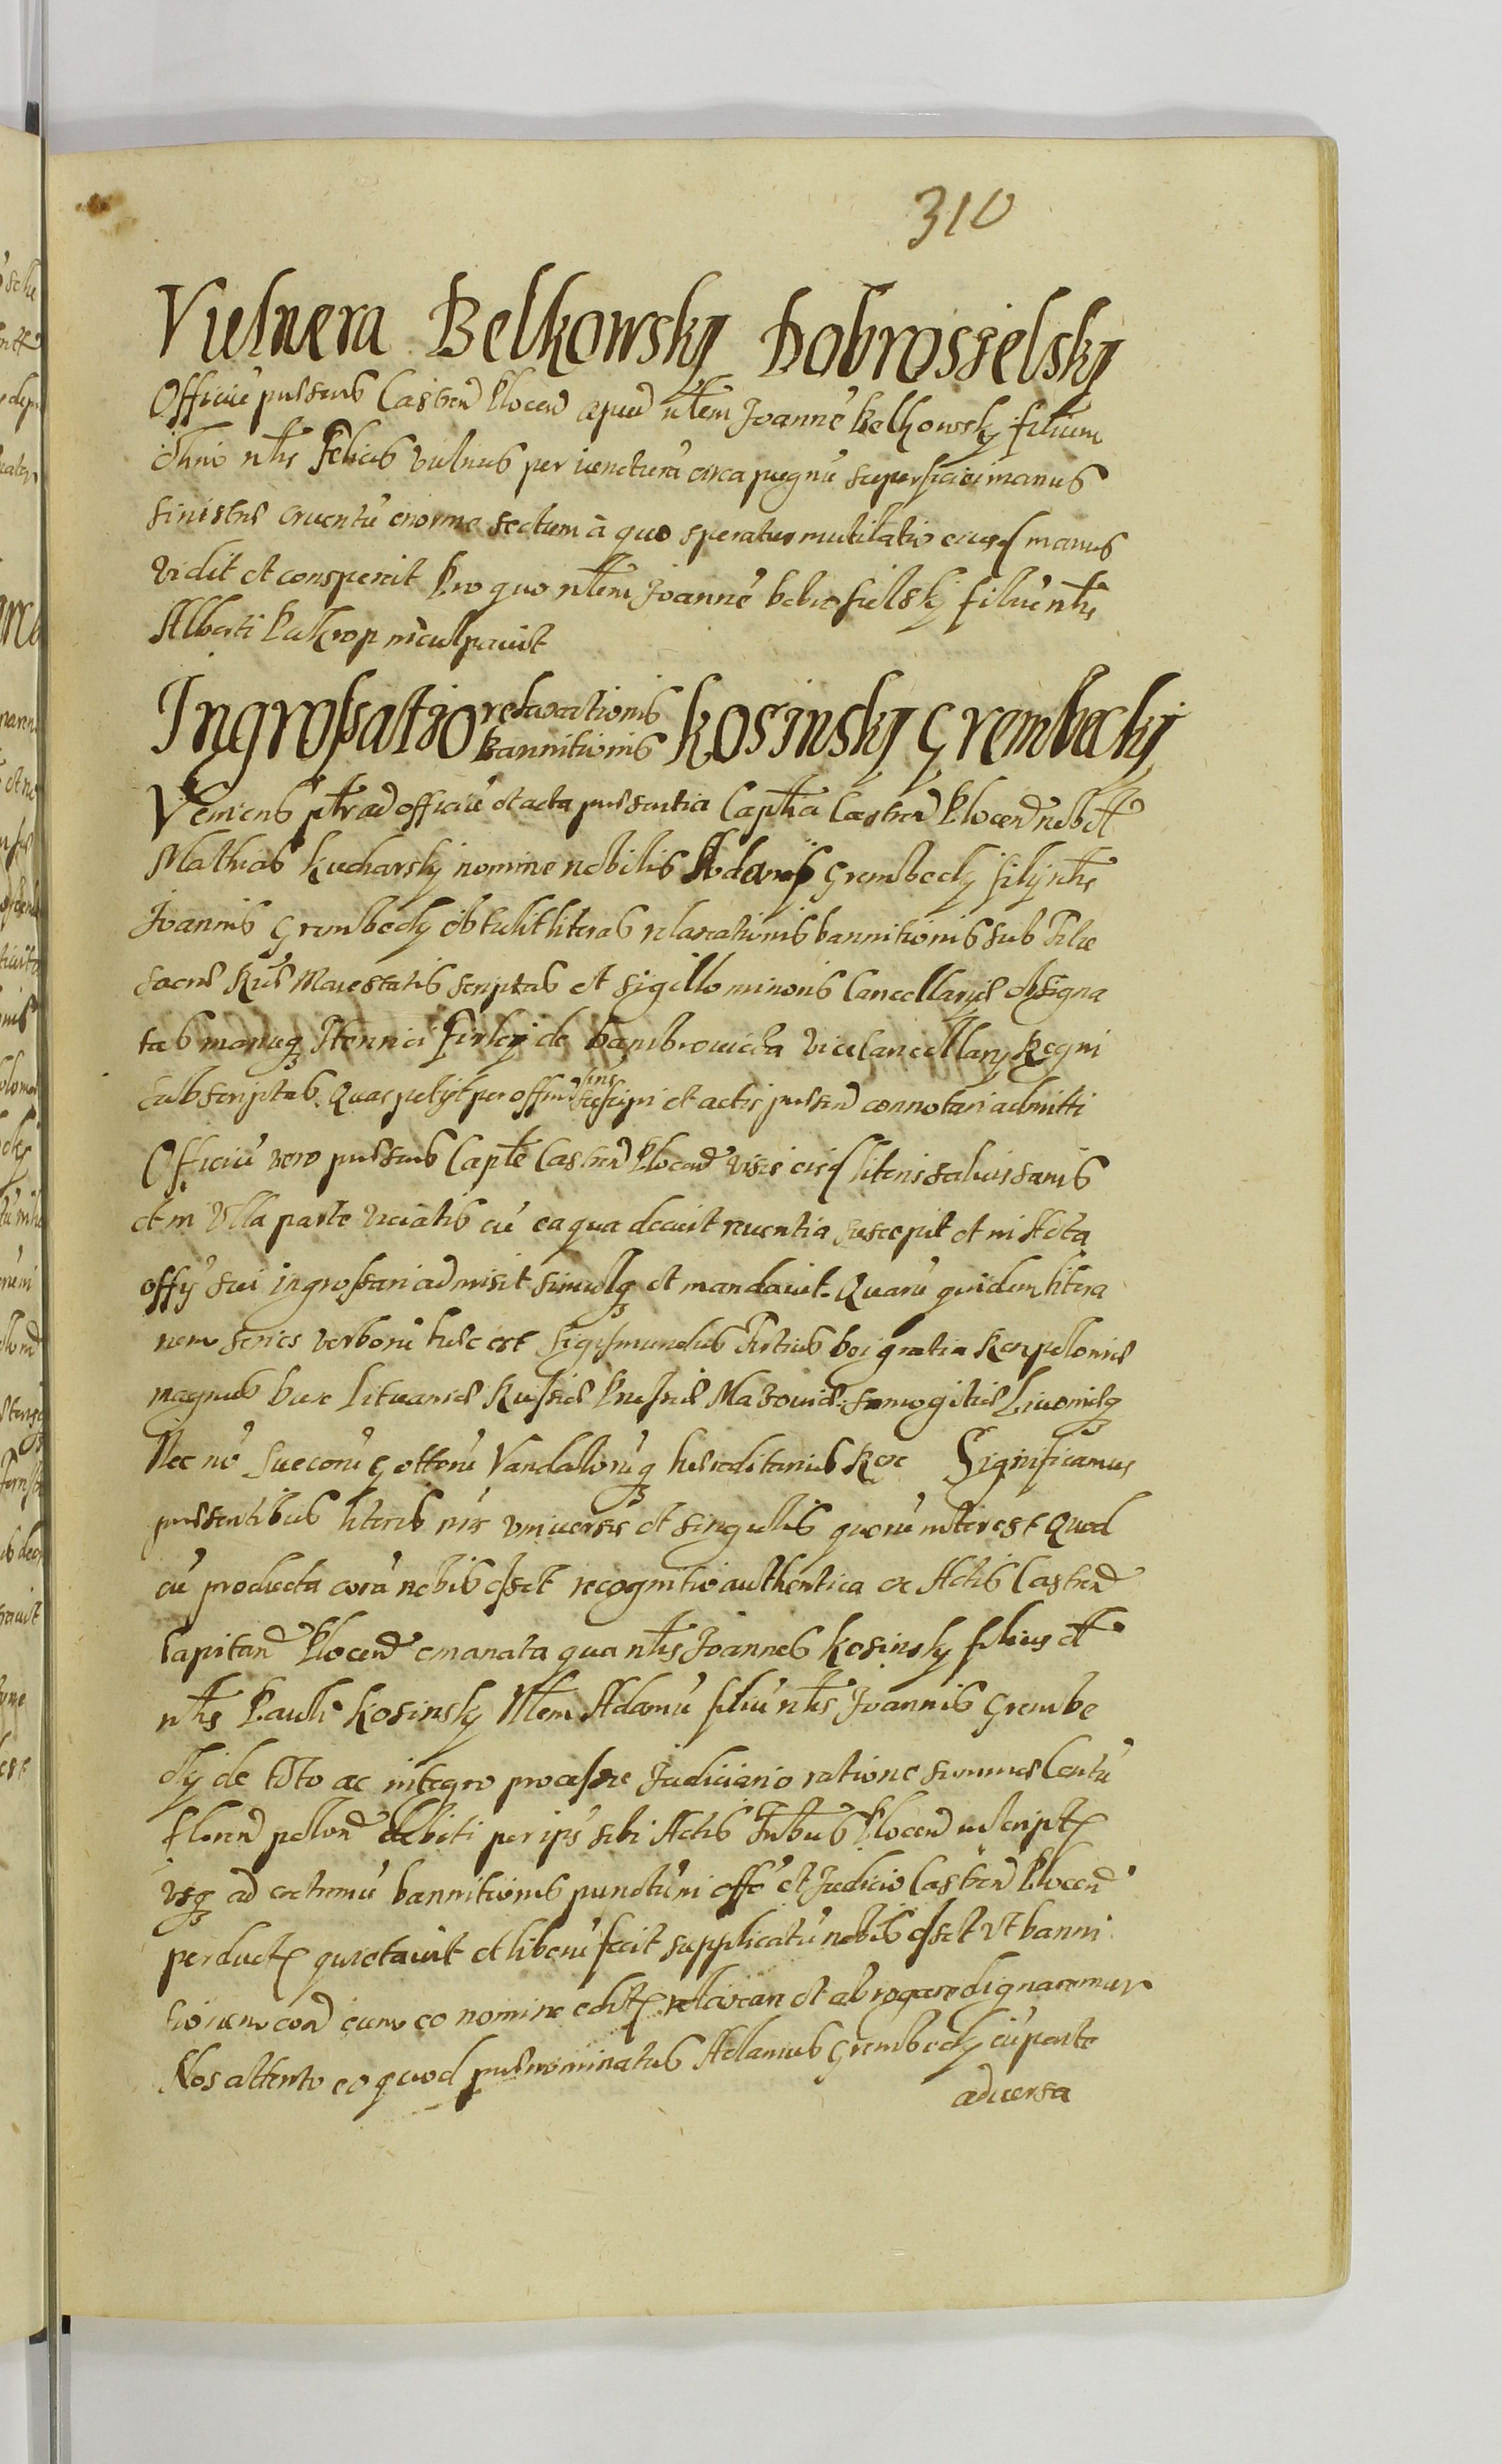 310
Vulnera Belkowsky Dobrosielsky
Officiū præsens Castren Plocen apud nłem Joannē Belkowsky filium
olim nłis Felicis vulnus per iuncturā circa pugnū superficiei manus
sinistræ cruentū enorme sectum à quo speratur mutilatio eiusd manus
vidit et conspexit Pro quo nłem Joannē Dobrosielsky filiū nłis
Alberti inculpauit
Ingrossatio relaxationis bannitionis Kosinsky Grembecky
Veniens płr ad officiū et acta præsentia Capłia Castren Plocen nobił
Mathias Kucharsky nomine nobilis Adami Grembecky filij nłis
Joannis Grembecky obtulit literas relaxationis bannitionis sub Tłte
sacræ Riæ Maiestatis scriptas et sigillo minoris Cancellariæ obsigna
tas manuq Henrici Firley de Dambrowicza Vicecancellarij Regni
subscriptas. Quas petijt per offm sūe suscipi et actis præsen connotari admitti
Officiū vero præsens Capłe Castren Plocen visis eisd literis saluis sanis
et in vlla parte viciatis cū ea qua decuit reuerentia suscepit et in Acta
offij sui ingrossari admisit simulq et mandauit. Quarū quidem litera
rum series verborū hæc est Sigismundus Tertius Dei gratia Rex Poloniæ
magnus Dux Lituaniæ Russiæ Prussiæ Mazouiæ Samogitiæ Liuoniæq
Nec nō Suecorū Gottorū Vandalorūq hæreditarius Rex Significamus
præsentibus literis nris vniuersis et singulis quorū interest Quod
cū producta corā nobis esset recognitio authentica ex Actis Castren
Capitan Plocen emanata qua nłis Joannes Kosinsky filius ół
nłis Pauli Kosinsky Nłem Adamū filiū nłis Joannis Grembe
cky de toto ac integro processu Judiciario ratione summæ Centū
floren polon debiti per ipm sibi Actis Plocen inscript
vsq ad extremū bannitionis punctū in offo et Judicio Castren Plocen
perduct quietauit et liberū fecit supplicatū nobis esset vt banni
tionem con eum eo nomine edit rellaxare et abrogare dignaremur
Nos attento eo quod prænominatus Adamus Grembecky cū parte
aduersa